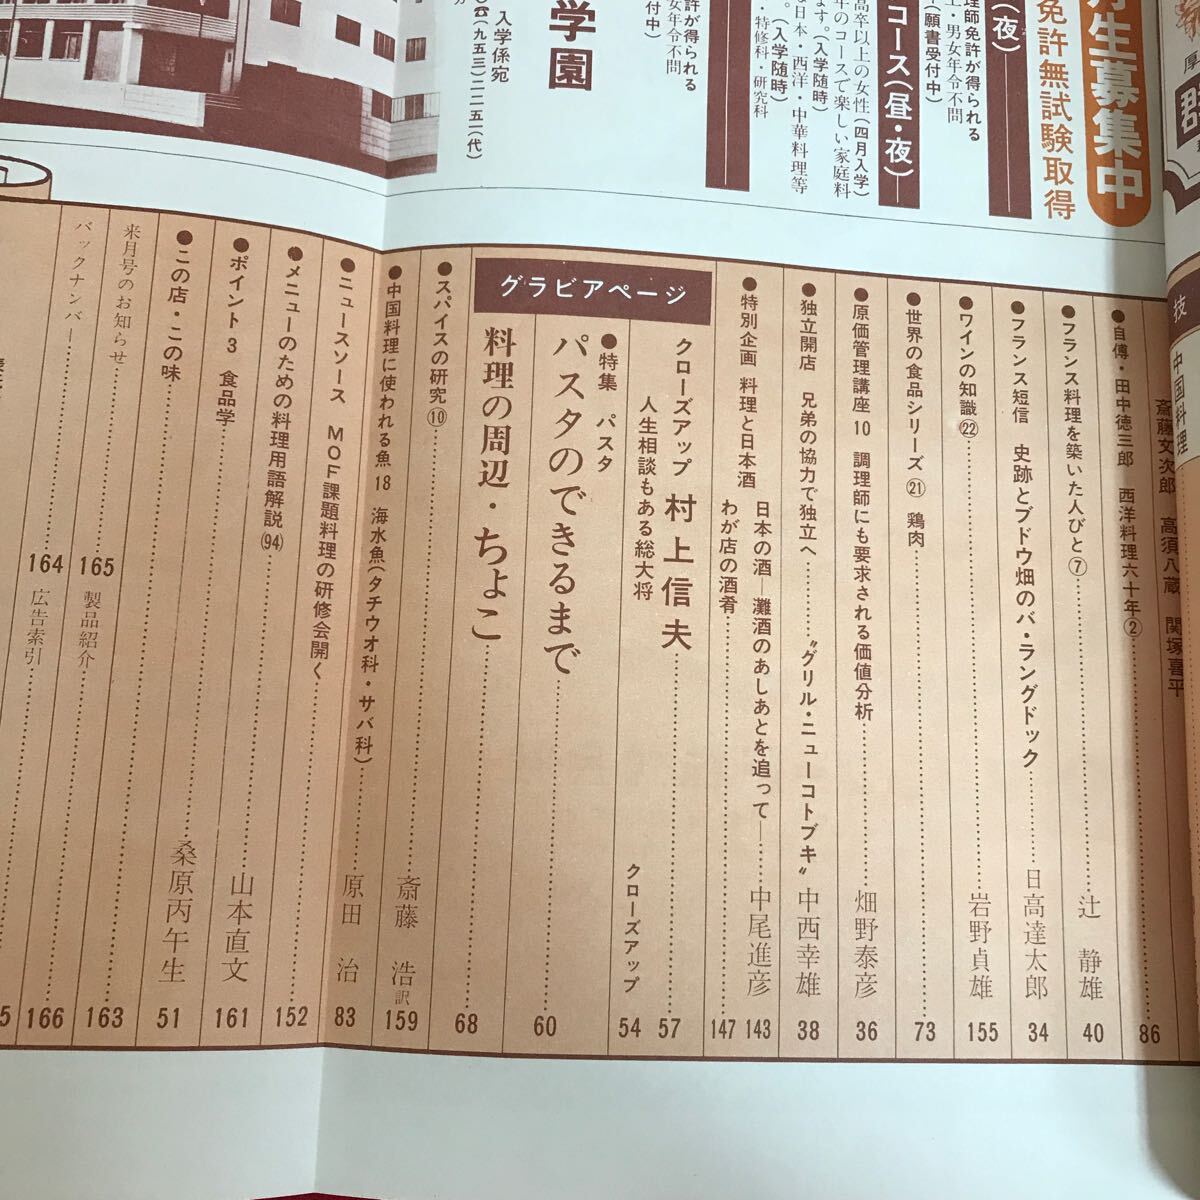 月生募集中
免許無試験取得
(夜)
理師免許が得られる
上・男女年令不問
(願書受付中)
コース(昼・夜)
高卒以上の女性(四月入学)
年のコースで楽しい家庭料
ます。(入学随時)
な日本・西洋・中華料理等
。(入学随時)
・特修科・研究科
許が得られる
女年令不問
付中)
学園
入学係宛
〇☎(九五三)二二五一(代)
技
中国料理
斎藤文次郎 高須八蔵 関塚喜平
●自傳・田中徳三郎 西洋料理六十年② 86
●フランス料理を築いた人びと⑦ 辻 静雄 40
●フランス短信 史跡とブドウ畑のバ・ラングドック 日高達太郎 34
●ワインの知識㉒ 岩野貞雄 155
●世界の食品シリーズ㉑ 鶏肉 73
●原価管理講座 10 調理師にも要求される価値分析 畑野泰彦 36
●独立開店 兄弟の協力で独立へ 〝グリル・ニューコトブキ〟 中西幸雄 38
●特別企画 料理と日本酒 日本の酒 灘酒のあしあとを追って 中尾進彦 143
わが店の酒肴 147
グラビアページ
クローズアップ 村上信夫 57
人生相談もある総大将 クローズアップ 54
●特集 パスタ
パスタのできるまで 60
料理の周辺・ちょこ 68
●スパイスの研究⑩ 斎藤 浩訳 159
●中国料理に使われる魚 18 海水魚(タチウオ科・サバ科) 原田 治 83
●ニュースソース MOF課題料理の研修会開く
●メニューのための料理用語解説(94) 152
●ポイント3 食品学 山本直文 161
●この店・この味 桑原丙午生 51
来月号のお知らせ 165
製品紹介 163
バックナンバー 164
広告索引 166